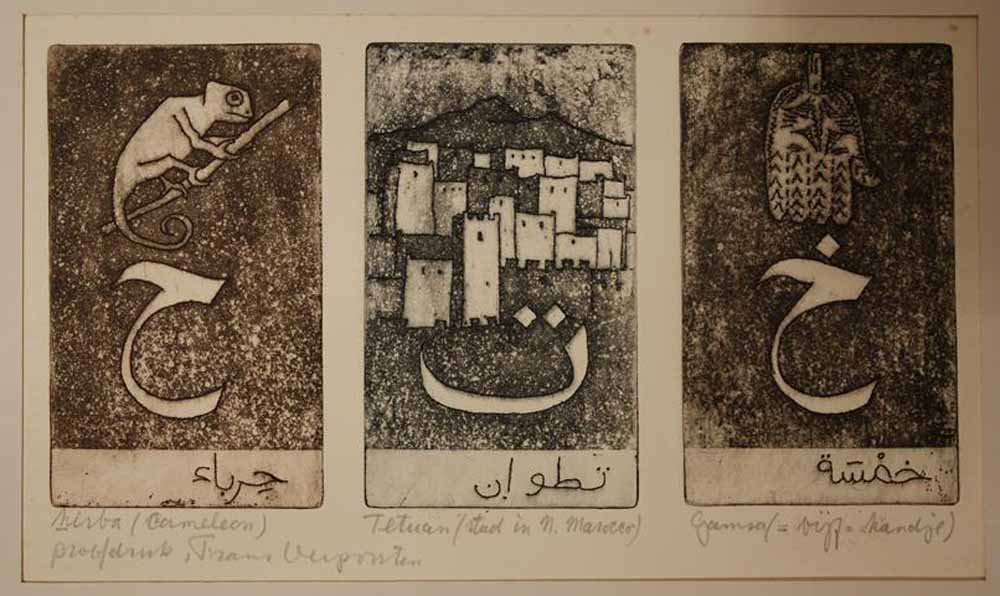 ح
جرباء
ت
تطوان
خ
خمْسَة
hirba (Cameleon)
Tetuan (stad in N. Marocco)
Gamsa (= vijf = handje)
proefdruk, Frans